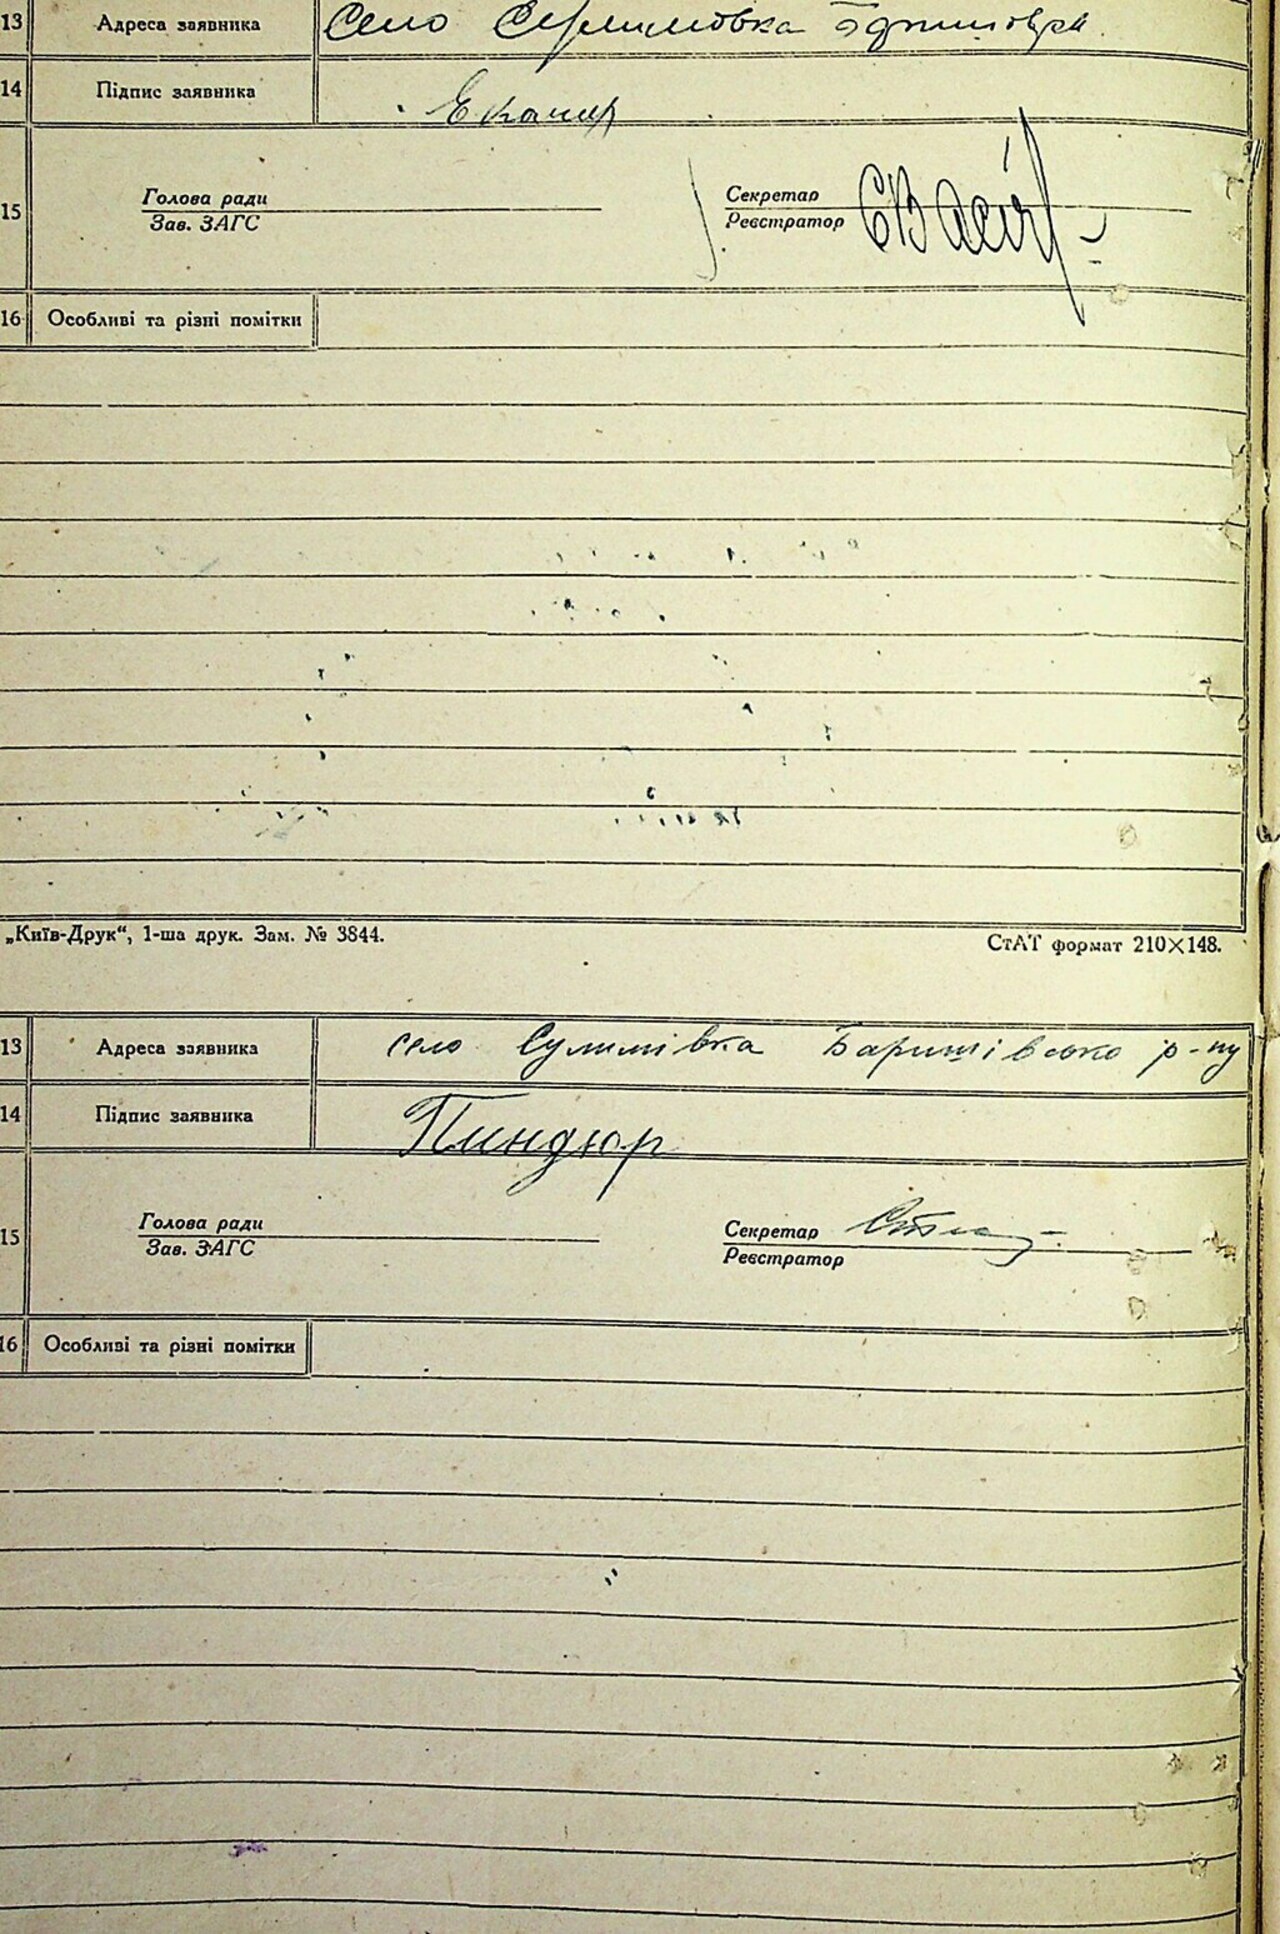 13 Адреса заявника Село
14 Підпис заявника
15 Голова ради Секретар
Зав. ЗАГС Реєстратор
16 Особливі та різні помітки
„Київ-Друк“, 1-ша друк. Зам. № 3844. СтАТ формат 210×148.
13 Адреса заявника село Сулимівка Баришівсько р-ну
14 Підпис заявника Пиндюр
15 Голова ради Секретар
Зав. ЗАГС Реєстратор
16 Особливі та різні помітки